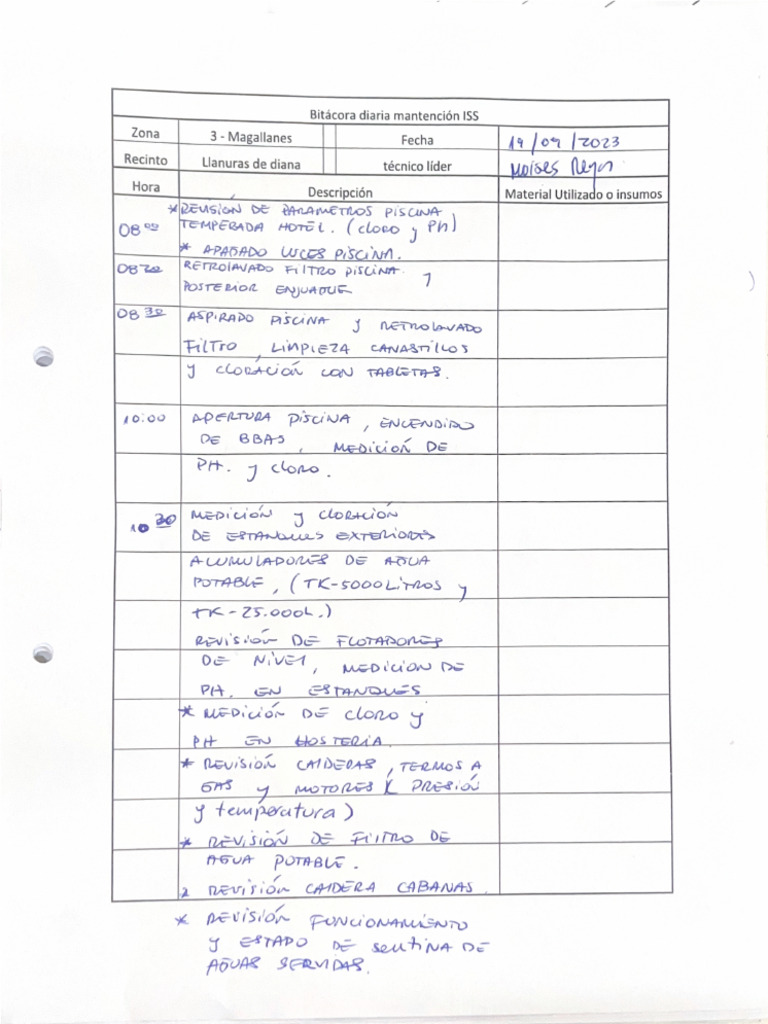 Bitácora diaria mantención ISS
Zona 3 - Magallanes Fecha 19/09/2023
Recinto Llanuras de diana técnico líder Moises Reyes
Hora Descripción Material Utilizado o insumos
* REVISIÓN DE PARAMETROS PISCINA
08 00 TEMPERADA HOTEL. (CLORO y PH)
* APAGADO LUCES PISCINA.
08 20 RETROLAVADO FILTRO PISCINA y
POSTERIOR ENJUAGUE
08 30 ASPIRADO PISCINA y RETROLAVADO
FILTRO, LIMPIEZA CANASTILLOS
y CLORACIÓN CON TABLETAS.
10:00 APERTURA PISCINA, ENCENDIDO
DE BBAS, MEDICIÓN DE
PH. y CLORO.
10 30 MEDICIÓN y CLORACIÓN
DE ESTANQUES EXTERIORES
ACUMULADORES DE AGUA
POTABLE, (TK-5000 LITROS y
TK-25.000L.)
REVISIÓN DE FLOTADORES
DE NIVEL, MEDICION DE
PH. EN ESTANQUES
* MEDICIÓN DE CLORO y
PH EN HOSTERIA.
* REVISIÓN CALDERAS, TERMOS A
GAS y MOTORES ( PRESIÓN
y temperatura)
* REVISIÓN DE FILTRO DE
AGUA POTABLE.
* REVISIÓN CALDERA CABANAS.
* REVISIÓN FUNCIONAMIENTO
y ESTADO DE SENTINA DE
AGUAS SERVIDAS.